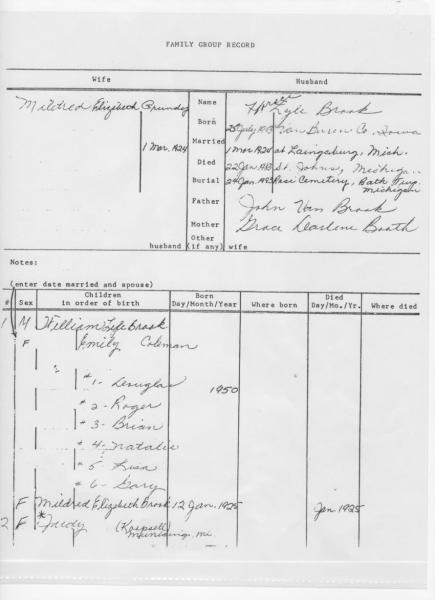 FAMILY GROUP RECORD
Wife Husband
Mildred Elizabeth Name Lyle Brook
Born 1903 Van Buren Co. Iowa
1 Mar. 1924 Married 1 Mar 1924 at Laingsburg, Mich.
Died 22 Jan. 1983 St. Johns,
Burial 24 Jan. 1983 Rose Cemetery, Bath Twp.
Michigan
Father John Van Brook
Mother Grace Darlene Booth
Other
husband (if any) wife
Notes:
(enter date married and spouse)
Children Born Died
# Sex in order of birth Day/Month/Year Where born Day/Mo./Yr. Where died
1 M William Lyle Brook
F Emily Coleman
#1- Douglas 1950
#2- Roger
#3- Brian
#4- Natalie
#5 Lisa
#6- Gary
F Mildred Elizabeth Brook 12 Jan. 1925 Jan 1925
2 F * Judy
Munising, Mi.